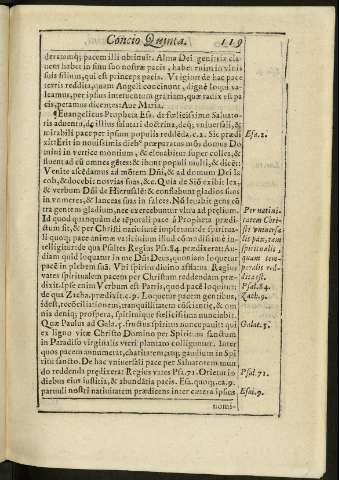 Concio Quinta. 119
deratumq; pacem illi obtinuit. Alma Dei genitrix cla-
uem habet in sinu suo nostræ pacis, habet enim in vinis
suis filium, qui est princeps pacis. Vt igitur de hac pace
terris reddita, quam Angeli concinunt, digne loqui va-
leamus, per ipsius interuentum gratiam, quæ radix est pa-
cis, petamus dicentes: Aue Maria.
¶ Euangelicus Propheta Esa. de fœlicissimo Saluato-
ris aduentu, de illius salutari doctrina, deq; vniuersali, &
mirabili pace per ipsum populis reddēda, c.2. Sic prædi
xit: Erit in nouissimis dieb° præparatus mōs domus Do
mini in vertice montium, & eleuabitur super colles, &
fluent ad eū omnes gētes: & ibunt populi multi, & dicēt:
Venite ascēdamus ad mōtem Dñi, & ad domum Dei Ia
cob, & docebit nos vias suas, & c. Quia de Siō exibit lex,
& verbum Dñi de Hierusalē: & conflabunt gladios suos
in vomeres, & lanceas suas in falces. Nō leuabit gens cō
tra gentem gladium, nec exercebuntur vltra ad prelium.
Id quod quanquam de pace à Prophera prædi
ctum sit, & per Christi natiuitatē impletum: de spirita-
li quoq; pace animæ vaticinium illud cōmodissimè in-
telligitur: de qua Psaltes Regius Psal.84. prædixerat: Au-
diam quid loquatur in me Dñs Deus, quoniam loquetur
pacē in plebem suā. Vti spiritu diuino afflatus Regius
vates spiritualem pacem per Christum reddendam præ-
dixit. Ipse enim Verbum est Patris, quod pacē loquitur:
de qua Zacha. prædixit. c. 9. Loquetur pacem gentibus,
idest, reconciliationem, tranquillitatem cōscientiæ, & om
nia deniq; prospera, spirituique fœlicissima nunciabit.
Quæ Paulus ad Gala.5. fructus spiritus nuncupauit: qui
ex ligno vitæ Christo Domino per Spiritum sanctum
in Paradiso virginalis vteri plantato colliguntur. Inter
quos pacem annumerat, charitatem, atq; gaudium in Spi
ritu sancto. De hac vniuersali pace per Saluatorem mun
do reddenda prædixerat Regius vates Psa.71. Orietur in
diebus eius iustitia, & abundātia pacis. Esa. quoq; ca.9.
paruuli nostri natiuitatem prædicens inter cætera ipsius
nomi-
Esa.2.
Per natiui-
tatem Chri-
sti vniuersa-
lis pax, tam
spiritualis,
quam tem-
poralis red-
dita est.
Psal.84.
Zach.9.
Galat.5.
Psal.71.
Esai.9.